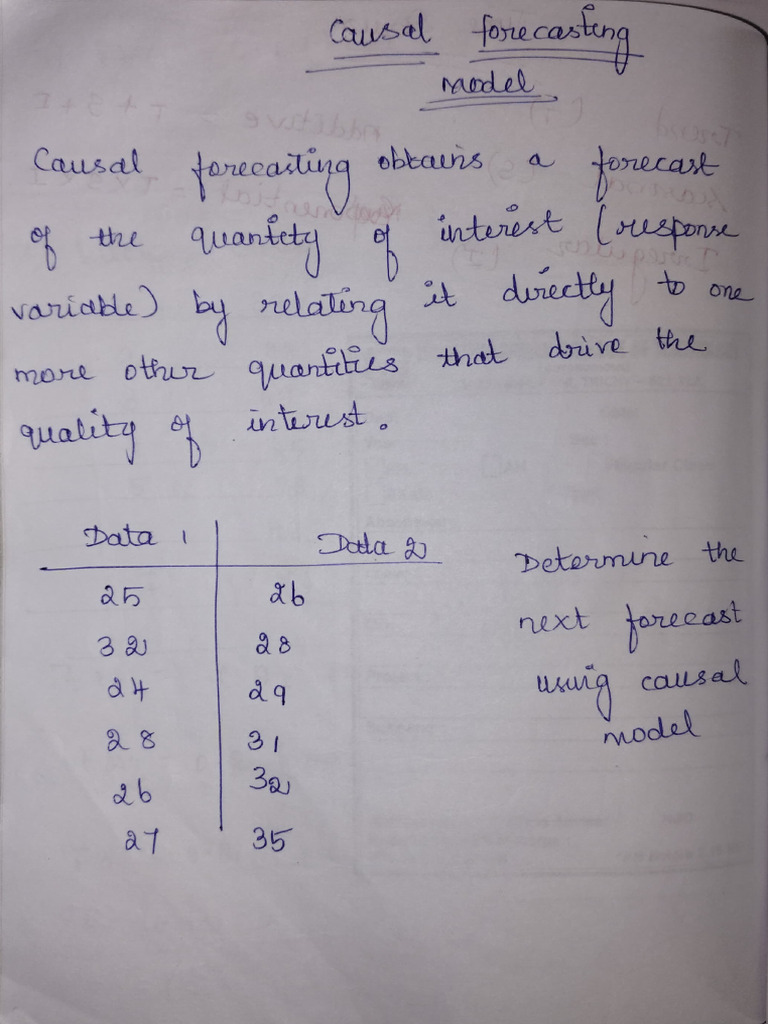 Causal forecasting
model
Causal forecasting obtains a forecast
of the quantity of interest (response
variable) by relating it directly to one
more other quantities that drive the
quality of interest.
Data 1 Data 2
25 26
32 28
24 29
28 31
26 32
27 35
Determine the
next forecast
using causal
model